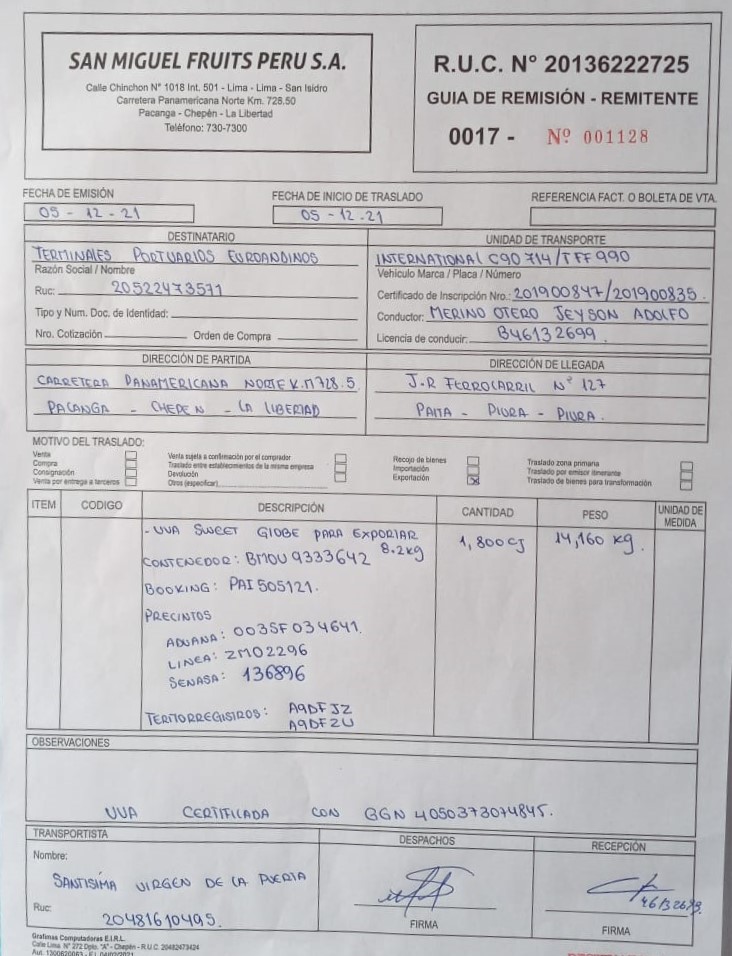 SAN MIGUEL FRUITS PERU S.A.
Calle Chinchon N° 1018 Int. 501 - Lima - Lima - San Isidro
Carretera Panamericana Norte Km. 728.50
Pacanga - Chepén - La Libertad
Teléfono: 730-7300
R.U.C. N° 20136222725
GUIA DE REMISIÓN - REMITENTE
0017 - Nº 001128
FECHA DE EMISIÓN
05 - 12 - 21
FECHA DE INICIO DE TRASLADO
05 - 12 - 21
REFERENCIA FACT. O BOLETA DE VTA.
DESTINATARIO
TERMINALES PORTUARIOS EUROANDINOS
Razón Social / Nombre
Ruc: 20522473571
Tipo y Num. Doc. de Identidad:
Nro. Cotización Orden de Compra
UNIDAD DE TRANSPORTE
INTERNATIONAL C90 714/TFF990
Vehículo Marca / Placa / Número
Certificado de Inscripción Nro.: 201900847/201900835.
Conductor: MERINO OTERO JEYSON ADOLFO
Licencia de conducir: B46132699.
DIRECCIÓN DE PARTIDA
CARRETERA PANAMERICANA NORTE K.M 728.5
PACANGA - CHEPEN - LA LIBERTAD
DIRECCIÓN DE LLEGADA
J.R FERROCARRIL N° 127
PAITA - PIURA - PIURA.
MOTIVO DEL TRASLADO:
Venta
Compra
Consignación
Venta por entrega a terceros
Venta sujeta a confirmación por el comprador
Traslado entre establecimientos de la misma empresa
Devolución
Otros (especificar)
Recojo de bienes
Importación
Exportación X
Traslado zona primaria
Traslado por emisor itinerante
Traslado de bienes para transformación
ITEM CODIGO DESCRIPCIÓN CANTIDAD PESO UNIDAD DE MEDIDA
- UVA SWEET GlOBE PARA EXPORTAR 8.2kg 1,800 CJ 14,160 kg.
CONTENEDOR: BMOU 9333642
BOOKING: PAI 505121.
PRECINTOS
ADUANA: 003SF034641.
LINEA: ZM02296
SENASA: 136896
TERMORREGISTROS: A9DFJZ
A9DFZU
OBSERVACIONES
UVA CERTIFICADA CON GGN 4050373074845.
TRANSPORTISTA
Nombre:
SANTISIMA VIRGEN DE LA PUERTA
Ruc: 20481610495.
DESPACHOS
FIRMA
RECEPCIÓN
46132699
FIRMA
Grafimas Computadoras E.I.R.L.
Calle Lima N° 272 Dpto. "A" - Chepén - R.U.C. 20482473424
Aut. 1300620063 - F.I. 04/02/2021